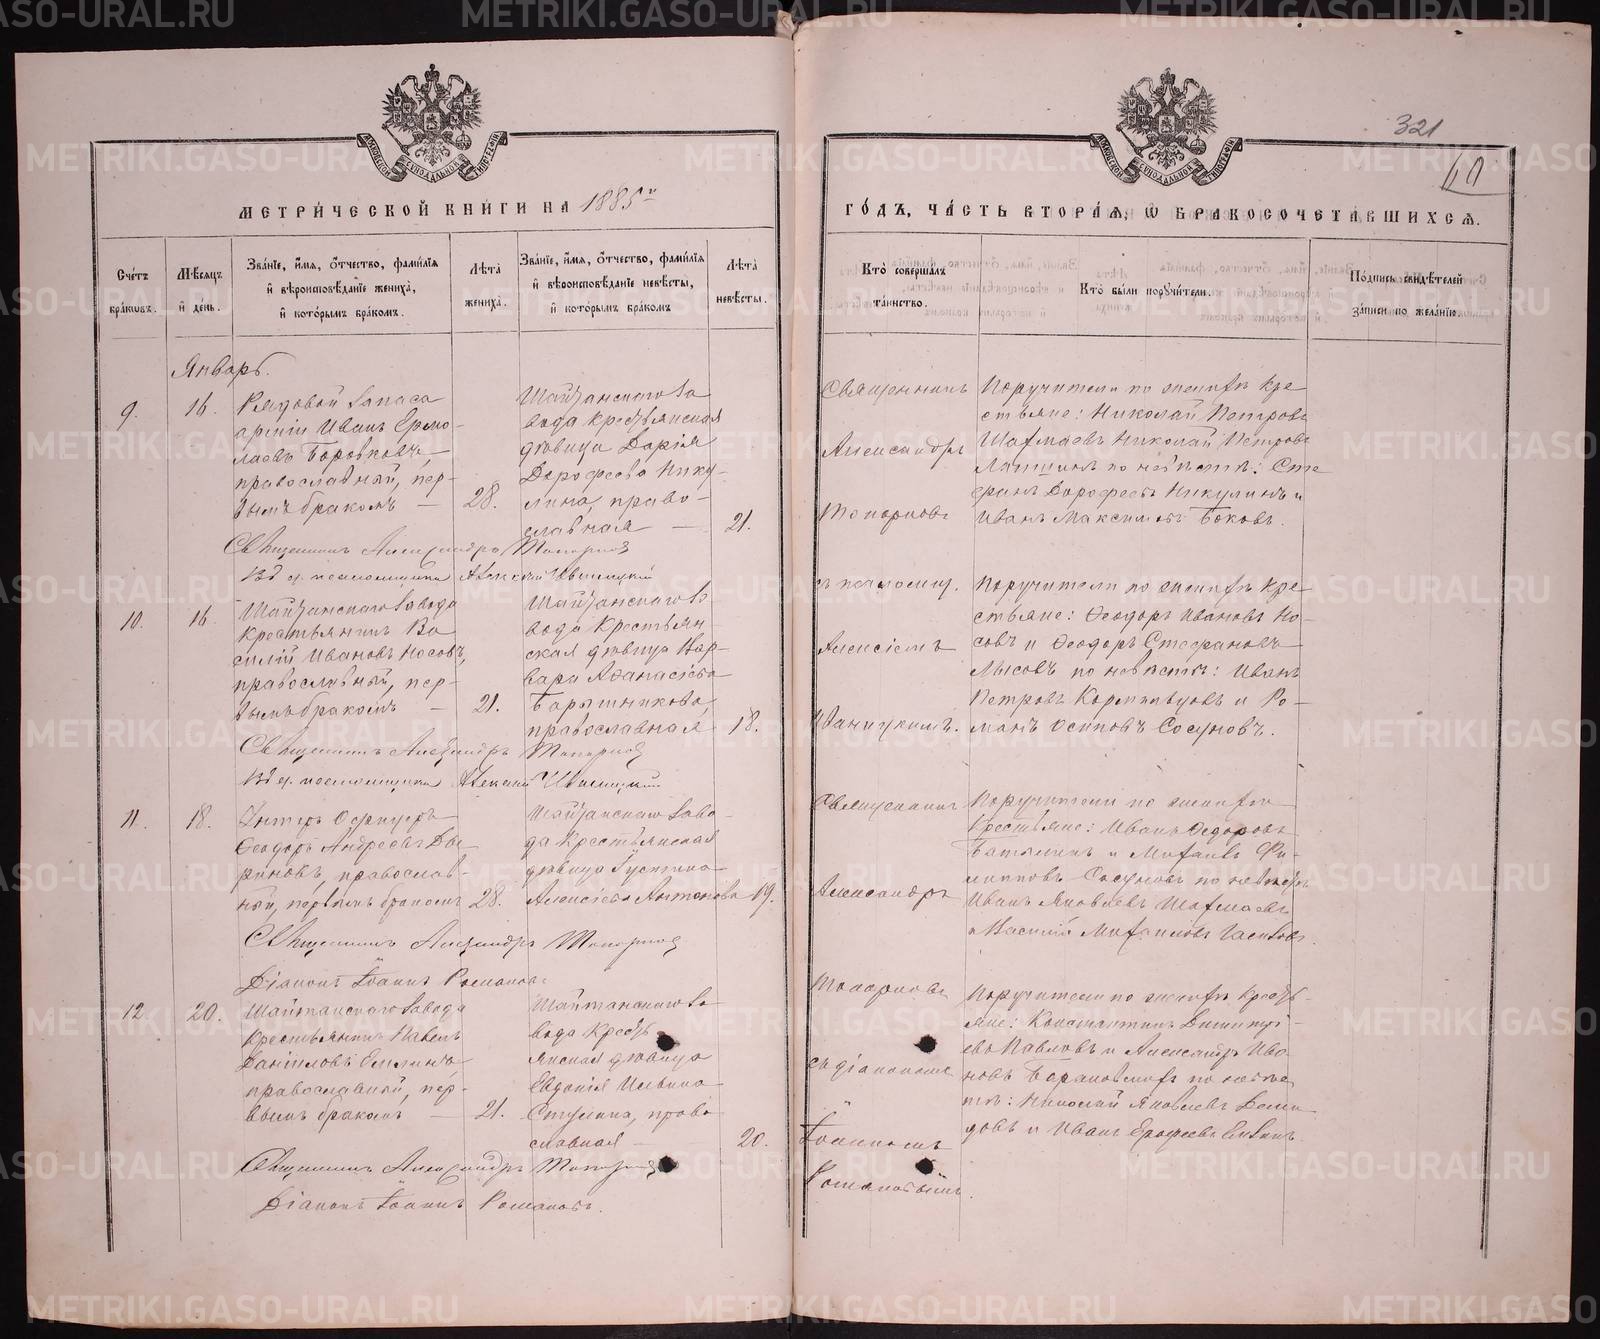 321
10
МЕТРИЧЕСКОЙ КНИГИ НА 1885й
ГОДЪ, ЧАСТЬ ВТОРАЯ, Ѡ БРАКОСОЧЕТАВШИХСЯ.
Счетъ браковъ.
Мѣсяцъ и день.
Званіе, имя, отчество, фамилія
и вѣроисповѣданіе жениха,
и которымъ бракомъ.
Лѣта жениха.
Званіе, имя, отчество, фамилія
и вѣроисповѣданіе невѣсты,
и которымъ бракомъ
Лѣта невѣсты.
Кто совершалъ таинство.
Кто были поручители.
Подпись свидѣтелей
записи по желанію.
Январь.
9.
16.
Рядовой запаса
арміи Иванъ Ермо-
лаевъ Боровковъ,
православный, пер-
вымъ бракомъ
28.
Шайтанскаго за
вода крестьянская
дѣвица Дарія
Дорофеева Нику-
лина, право-
славная
21.
Священникъ
Александръ
Топорковъ
Поручители по женихѣ кре
стьяне: Николай Петровъ
Шахмаевъ Николай Петровъ
Лапшинъ по невѣстѣ: Сте
фанъ Дорофеевъ Никулинъ и
Иванъ Максимовъ Боковъ.
Священникъ Александръ Топорковъ
10.
16.
Шайтанскаго завода
крестьянинъ Ва
силій Ивановъ Носовъ,
православный, пер-
вымъ бракомъ
21.
Шайтанскаго за
вода крестьян-
ская дѣвица Вар-
вара Афанасіева
Барышникова,
православная
18.
Алексіемъ
Поручители по женихѣ кре
стьяне: Ѳеодоръ Ивановъ Но-
совъ и Ѳеодоръ Стефановъ
Лысовъ по невѣстѣ: Иванъ
Петровъ Кормильцовъ и Ро-
манъ Осиповъ Сосуновъ.
Священникъ Александръ Топорковъ
11.
18.
Унтеръ Офицеръ
Ѳеодоръ Андреевъ
православ-
ный, первымъ бракомъ
28.
Шайтанскаго заво-
да крестьянская
дѣвица Густина
Алексіева Антонова
19.
Священникъ
Александръ
Топорковъ
Поручители по женихѣ
крестьяне: Иванъ Ѳедоровъ
и Михаилъ Фи-
липповъ Сосуновъ по невѣстѣ
Иванъ Яковлевъ Шахмаевъ
Михаиловъ
Священникъ Александръ Топорковъ
Діаконъ Іоаннъ Романовъ
12.
20.
Шайтанскаго завода
крестьянинъ Павелъ
Даніиловъ
православный, пер-
вымъ бракомъ
21.
Шайтанскаго за
вода кресть
янская дѣвица
Евдокія Ильина
Стулина, право
славная
20.
съ діакономъ
Іоанномъ
Романовымъ.
Поручители по женихѣ кресть-
яне: Константинъ Димитрі-
евъ Павловъ и Александръ Ива
новъ по невѣс
тѣ: Николай Яковлевъ Деми
довъ и Иванъ Ерофеевъ
Священникъ Александръ Топорковъ
Діаконъ Іоаннъ Романовъ.
METRIKI.GASO-URAL.RU